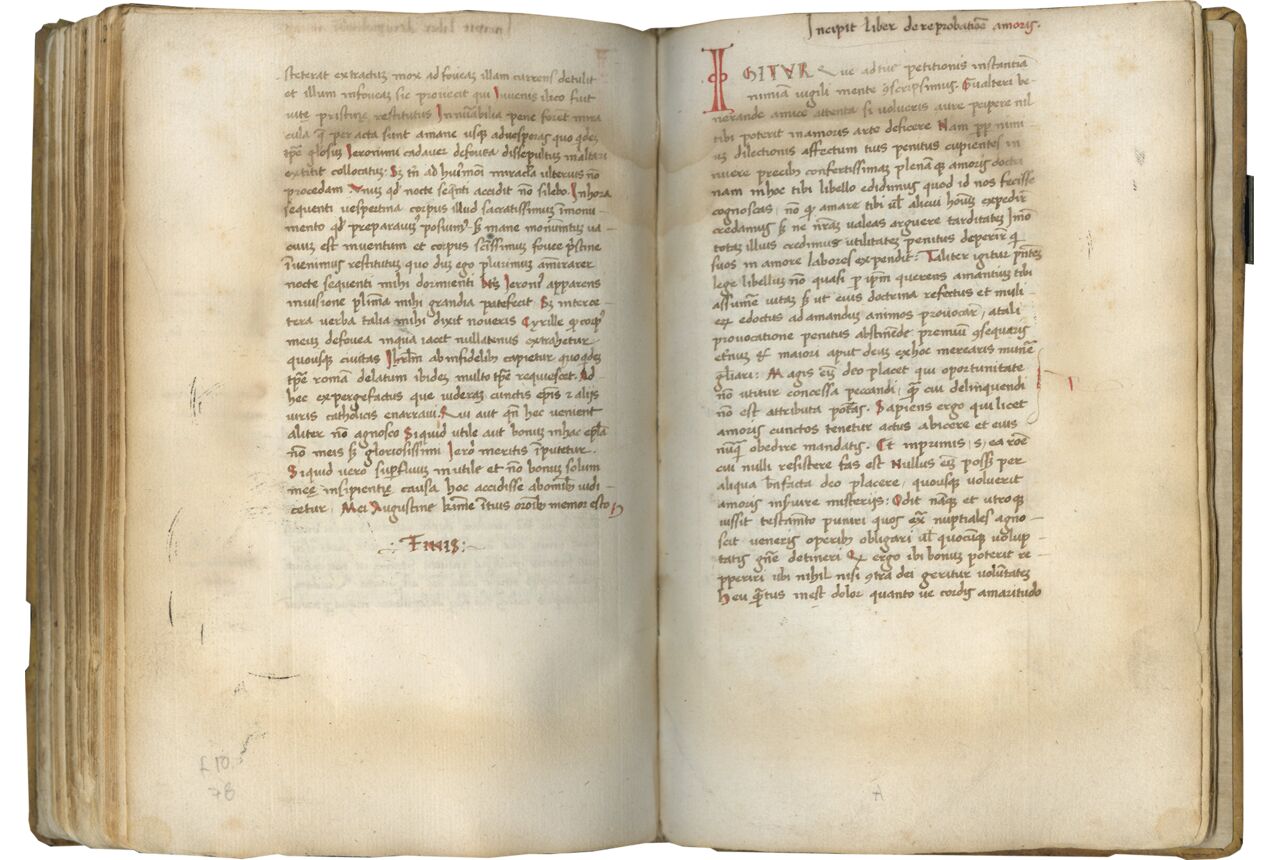 steterat extractus mox ad foveaz illam currens detulit
et illum infoveaz sic proiecit qui Iuvenis ilico fuit
vite pristine restitutus Innu͞abilia pene foret mira
cula q̄ per acta sunt amane usq; advesperas quo qdeȝ
tp̄e gl̄osuȝ Ieronimi cadaver defovea dissepultuȝ inaltari
extitit collocatuȝ: Sȝ tn̄ ad hui9moi miracl̄a ulterius nō
procedam Vnuȝ qd' nocte seq̄nti accidit nō silebo. Inhora
sequenti vespertina corpus illud sacratissimuȝ īmonu-
mento qd' preparavi9 posuim9. sȝ mane monumētuȝ va-
cuuȝ est inventum et corpus sc̄issimuȝ fovee p̄stine
īvenimus restitutuȝ quo duȝ ego plurimuȝ am̄irarer
nocte sequenti mihi dormienti bt̄s Ieroni9 apparens
invisione pl̄ima mihi grandia patefecit Sȝ interce-
tera verba talia mihi dixit noveris Cyrille q̄ corp9
meuȝ defovea inqua iacet nullatenus extrahetur
quousq; civitas Ihrl̄m ab infidelib9 capietur quo qdeȝ
tp̄e romā delatum ibideȝ multo tp̄e requiescet. Ad
hec expergefactus que videraȝ cunctis ep̄is & alijs
viris catholicis enarravi. Qui aut qn̄ hec venient
aliter nō agnosco Siquid utile aut bonuȝ inhac ep̄la
nō meis sȝ gloriosissimi Iero meritis īputetur.
Siquid vero sup̄fluuȝ inutile et nō bonuȝ solum
meę insipientię causa hoc accidisse ab omīb9 iudi-
cetur. Mei Augustine kar̄me ītuis orōib9 memor esto
.: Finis :.
Incipit liber de reprobatiōe amoris.
IGITVR Que ad tuę petitionis instantiā
nimiuȝ vigili mente ꝯscripsimus. Gualteri ve-
nerande amice attenta si volueris aure p̄cipere nil
tibi poterit inamoris arte deficere Nam pp̄ nimi-
uȝ dilectionis affectum tuis penitus cupientes in-
nuere precib9 confertissimaȝ plenāq; amoris docti
nam inhoc tibi libello edidimus quod id nos fecisse
cognoscas, nō q̄ amare tibi ul̄ alicui hoīuȝ expedir̄
credamus sȝ ne nr̄aȝ valeas arguere tarditatē Imo
totaȝ illius credimus utilitateȝ penitus deperir̄ q̄
suos in amore labores expendit: Taliter igitur pn̄teȝ
lege libelluȝ nō quasi p ip̄m querens amantiuȝ tibi
assumē vitaȝ sȝ ut eius doctrina refectus et muli-
eȝ edoctus ad amanduȝ animos provocar̄, a tali
provocatione penitus abstinēdo premiuȝ ꝯsequaris
etnuȝ & maiori apud deuȝ ex hoc merearis munēe
gl̄iari: Magis em̄ deo placet qui oportunitate
nō utitur concessa peccandi, q̄ cui delinquendi
nō est attributa pot̄as. Sapiens ergo qui licet
amoris cunctos tenetur actus abicere et eius
nunq̄ obedire mandatis. Et inprimis, s, ea rōe
cui nulli resistere fas est Nullus em̄ posȝ per
aliqua bn̄facta deo placere, quousq; voluerit
amoris inservire misterijs: Odit nāq; et utroq;
iussit testam̄to puniri quos ex̄ nuptiales agno-
scit veneris operib9 obligari ul̄ quocūq; volup-
tatis gn̄e detineri Qd ergo ibi bonuȝ poterit re-
pperiri ubi nihil nisi ꝯtra dei geritur volūtateȝ
Heu q̄tus inest dolor quanto ve cordis amaritudo
£10.
78
A